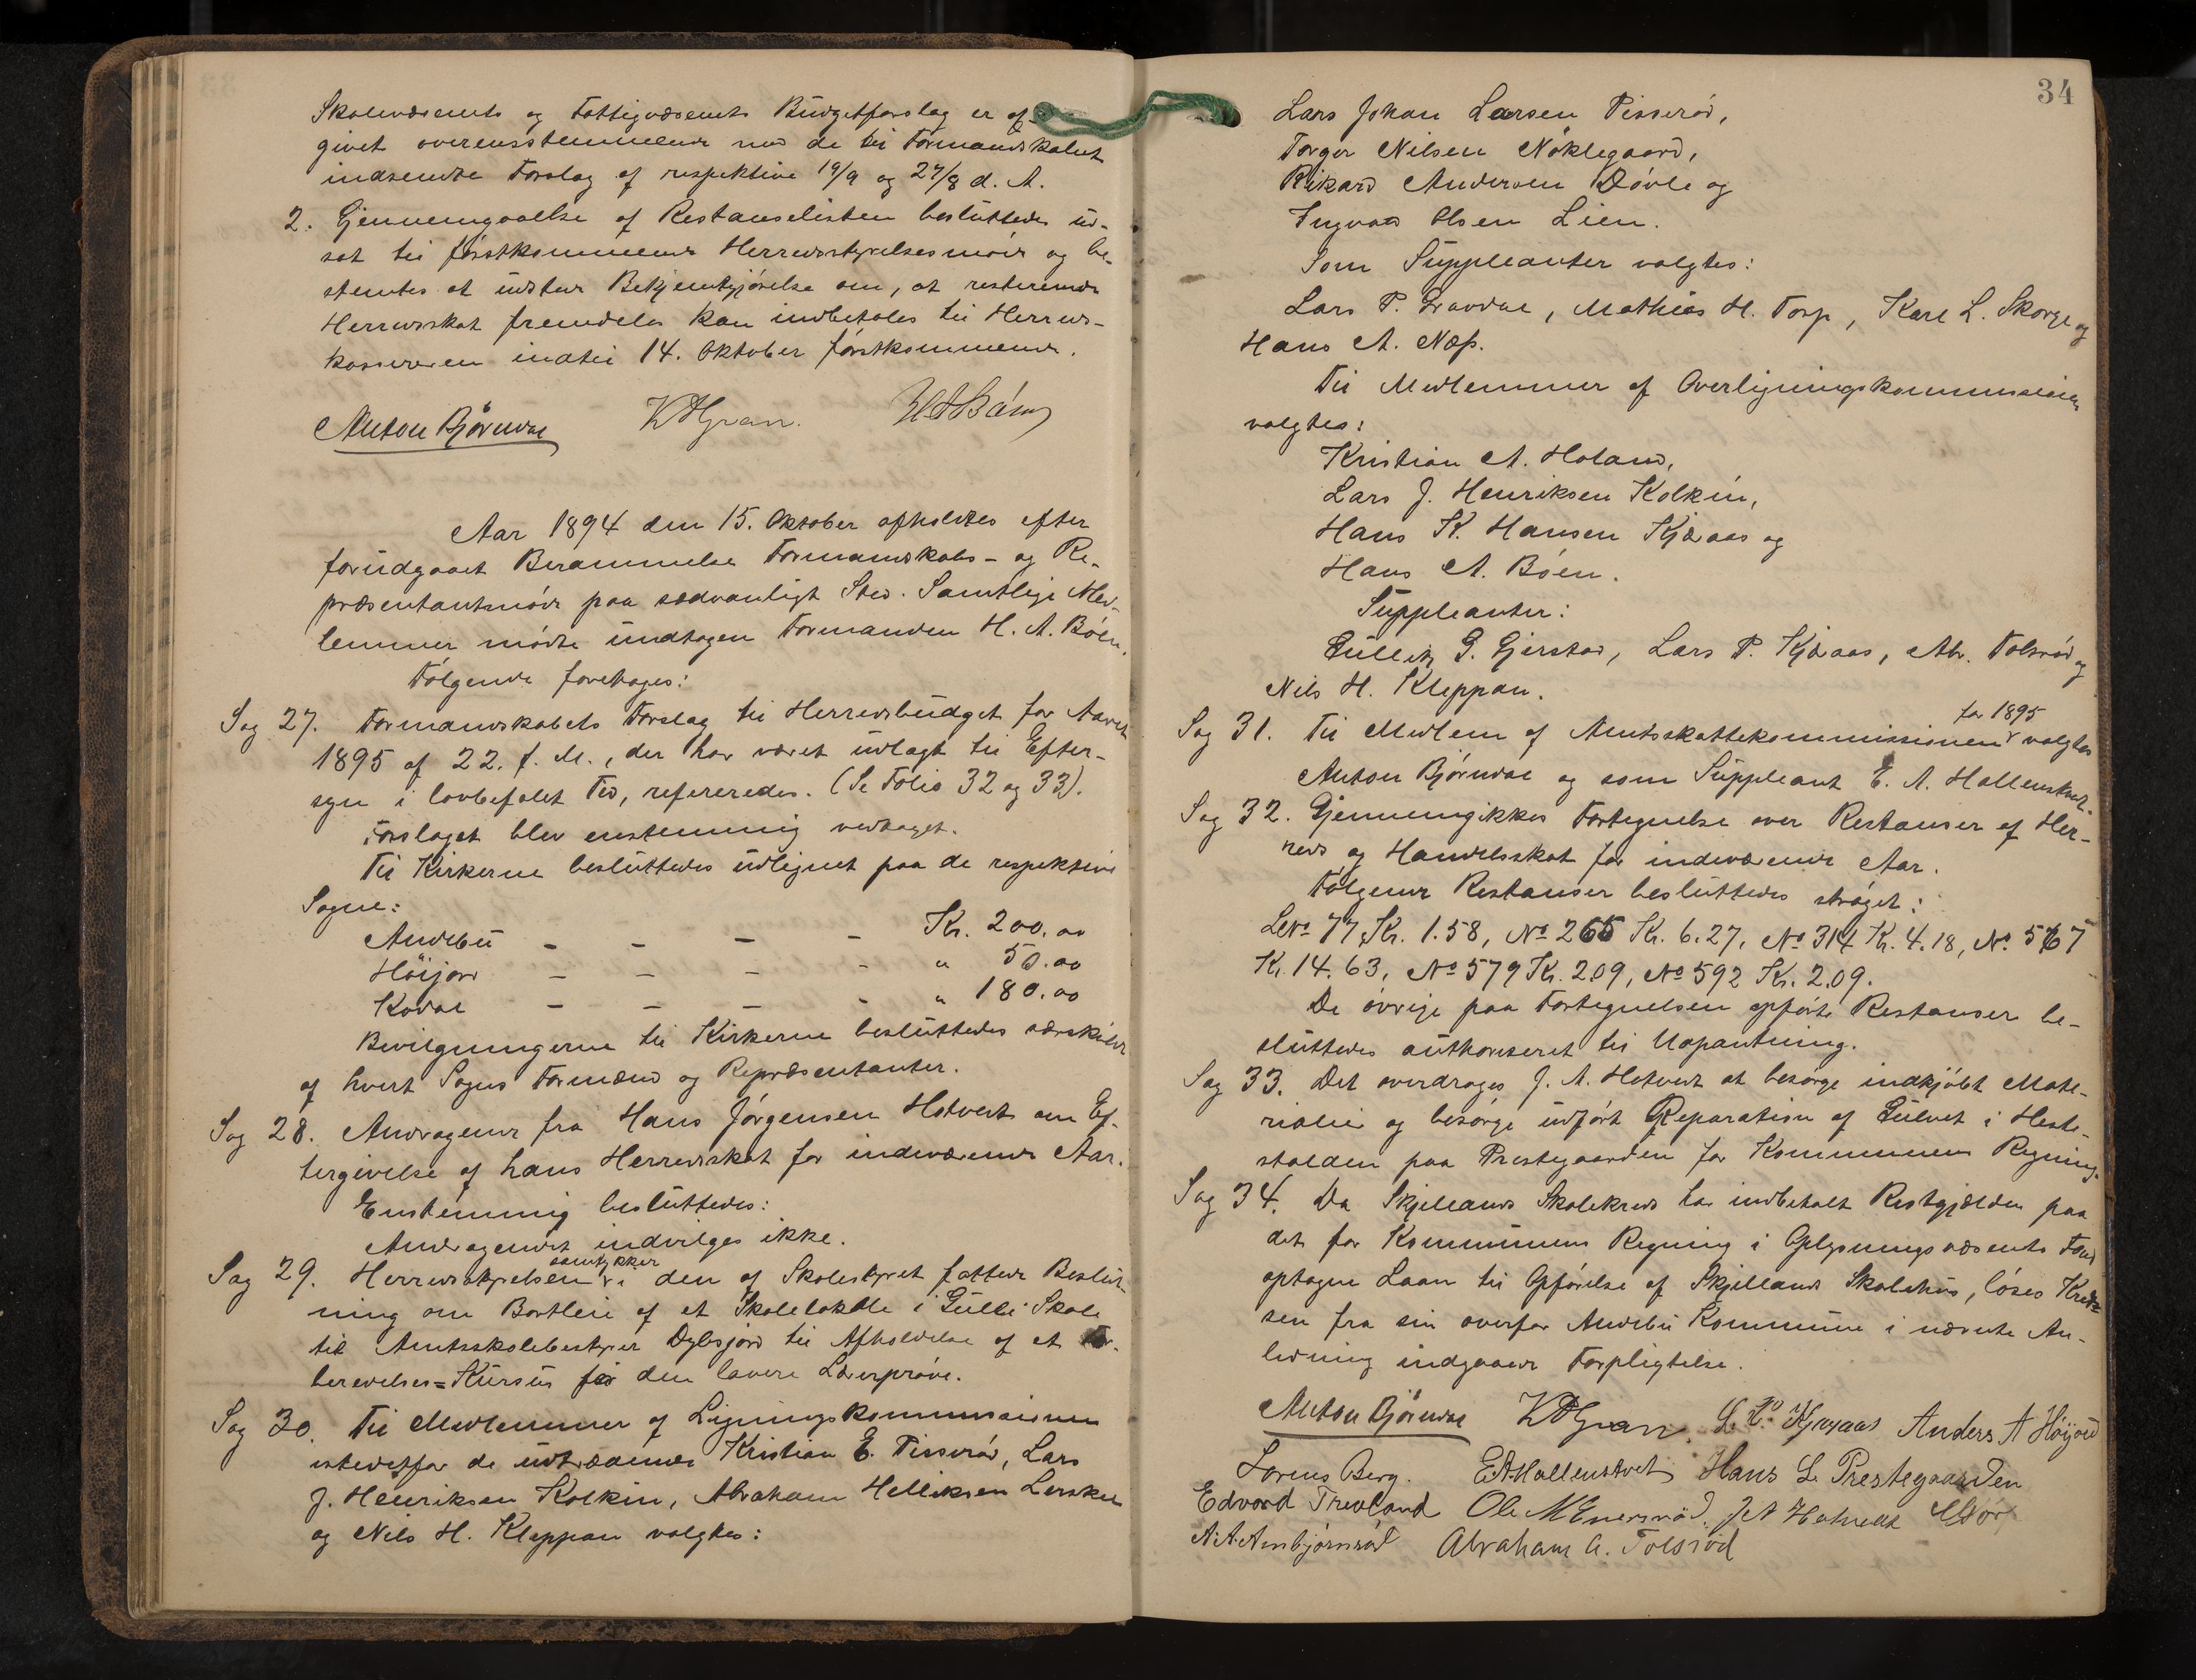 Skolevæsenets og Fattigvæsenets Budgetforslag er af-
givet overensstemmende med de til Formandskabet
indsendte Forslag af respektive 19/9 og 27/8 d. A.
2. Gjennemgaaelse af Restanselisten besluttedes ud-
sat til førstkommende Herredsstyrelsesmøde og be-
stemtes at udstede Bekjendtgjørelse om, at resterende
Herredsskat fremdeles kan indbetales til Herreds-
kassereren indtil 14. Oktober førstkommende.
Anton Bjørndal KAGran. HABøen
Aar 1894 den 15. Oktober afholdtes efter
forudgaaet Berammelse Formandskabs- og Re-
præsentantmøde paa sædvanligt Sted. Samtlige Med-
lemmer mødte undtagen Formanden H. A. Bøen.
Følgende foretoges:
Sag 27. Formandskabets Forslag til Herredsbudget for Aaret
1895 af 22. f. M., der har været udlagt til Efter-
syn i lovbefalet Tid, refereredes. (Se Folio 32 og 33).
Forslaget blev enstemmig vedtaget.
Til Kirkerne besluttedes udlignet paa de respektive
Sogne:
Andebu - - - - Kr. 200.00
Høijord - - - - " 50.00
Kodal - - - - " 180.00
Bevilgningerne til Kirkerne besluttedes særskildt
af hvert Sogns Formænd og Repræsentanter.
Sag 28. Andragende fra Hans Jørgensen Hotvedt om Ef-
tergivelse af hans Herredsskat for indeværende Aar.
Enstemmig besluttedes:
Andragendet indvilges ikke.
samtykker
Sag 29. Herredsstyrelsen i den af Skolestyret fattede Beslut-
ning om Bortleie af et Skolelokale i Gulli Skole
til Amtsskolebestyrer Dybsjord til Afholdelse af et For-
beredelses=Kursus for den lavere Lærerprøve.
Sag 30. Til Medlemmer af Ligningskommissionen
istedetfor de udtrædende Kristian E. Tisserød, Lars
J. Henriksen Kolkin, Abraham Helliksen Lerskal
og Nils H. Kleppan valgtes:
34
Lars Johan Larsen Tisserød,
Torger Nilsen Nøklegaard,
Rikard Andersen Døvle og
Ingvald Olsen Lien.
Som Suppleanter valgtes:
Lars P. Gravdal, Mathias H. Torp, Karl L. Skorge og
Hans A. Næss.
Til Medlemmer af Overligningskommissionen
valgtes:
Kristian A. Holand,
Lars J. Henriksen Kolkin,
Hans K. Hansen Kjæraas og
Hans A. Bøen.
Suppleanter:
Gullik G. Gjerstad, Lars P. Kjæraas, Abr. Tolsrød og
Nils H. Kleppan.
for 1895
Sag 31. Til Medlem af Amtsskattekommissionen valgtes
Anton Bjørndal og som Suppleant E. A. Hallenstvet.
Sag 32. Gjennemgikkes Fortegnelse over Restanser af Her-
reds og Handelsskat for indeværende Aar.
Følgende Restanser besluttedes strøget:
LNo 77 Kr. 1.58, No 265 Kr. 6.27, No 314 Kr. 4.18, No 567
Kr. 14.63, No 579 Kr. 2.09, No 592 Kr. 2.09.
De øvrige paa Fortegnelsen opførte Restanser be-
sluttedes authoriseret til Udpantning.
Sag 33. Det overdroges J. A. Hotvedt at besørge indkjøbt Mate-
rialier og besørge udført Reparation af Gulvet i Heste-
stalden paa Prestegaarden for Kommunens Regning.
Sag 34. Da Skjellands Skolekreds har indbetalt Restgjælden paa
det for Kommunens Regning i Oplysningsvæsenets Fond
optagne Laan til Opførelse af Skjellands Skolehus, løses Kred-
sen fra sin overfor Andebu Kommune i nævnte An-
ledning indgaaede Forpligtelse.
Anton Bjørndal KAGran. L. P. Kjæraas Anders A Høijord
Lorens Berg. EAHallenstvet Hans L. Prestegaarden
Edvard Trevland Ole M Enersrød. J A Hotvedt
A. A. Ambjørnsrød Abraham A. Tolsrød